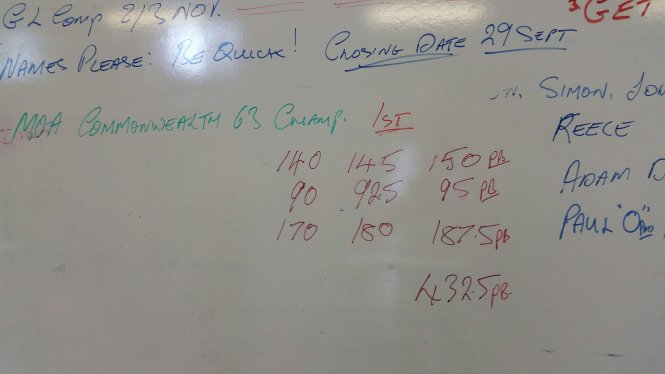 GL Comp 2/3 NOV.
3. GET
NAMES PLEASE: BE QUICK! CLOSING DATE 29 SEPT
SIMON,
MOA COMMONWEALTH 63 CHAMP. 1ST
REECE
140 145 150 PB
ADAM D
90 925 95 PB
PAUL "O"
170 180 187.5 PB
432.5 PB.